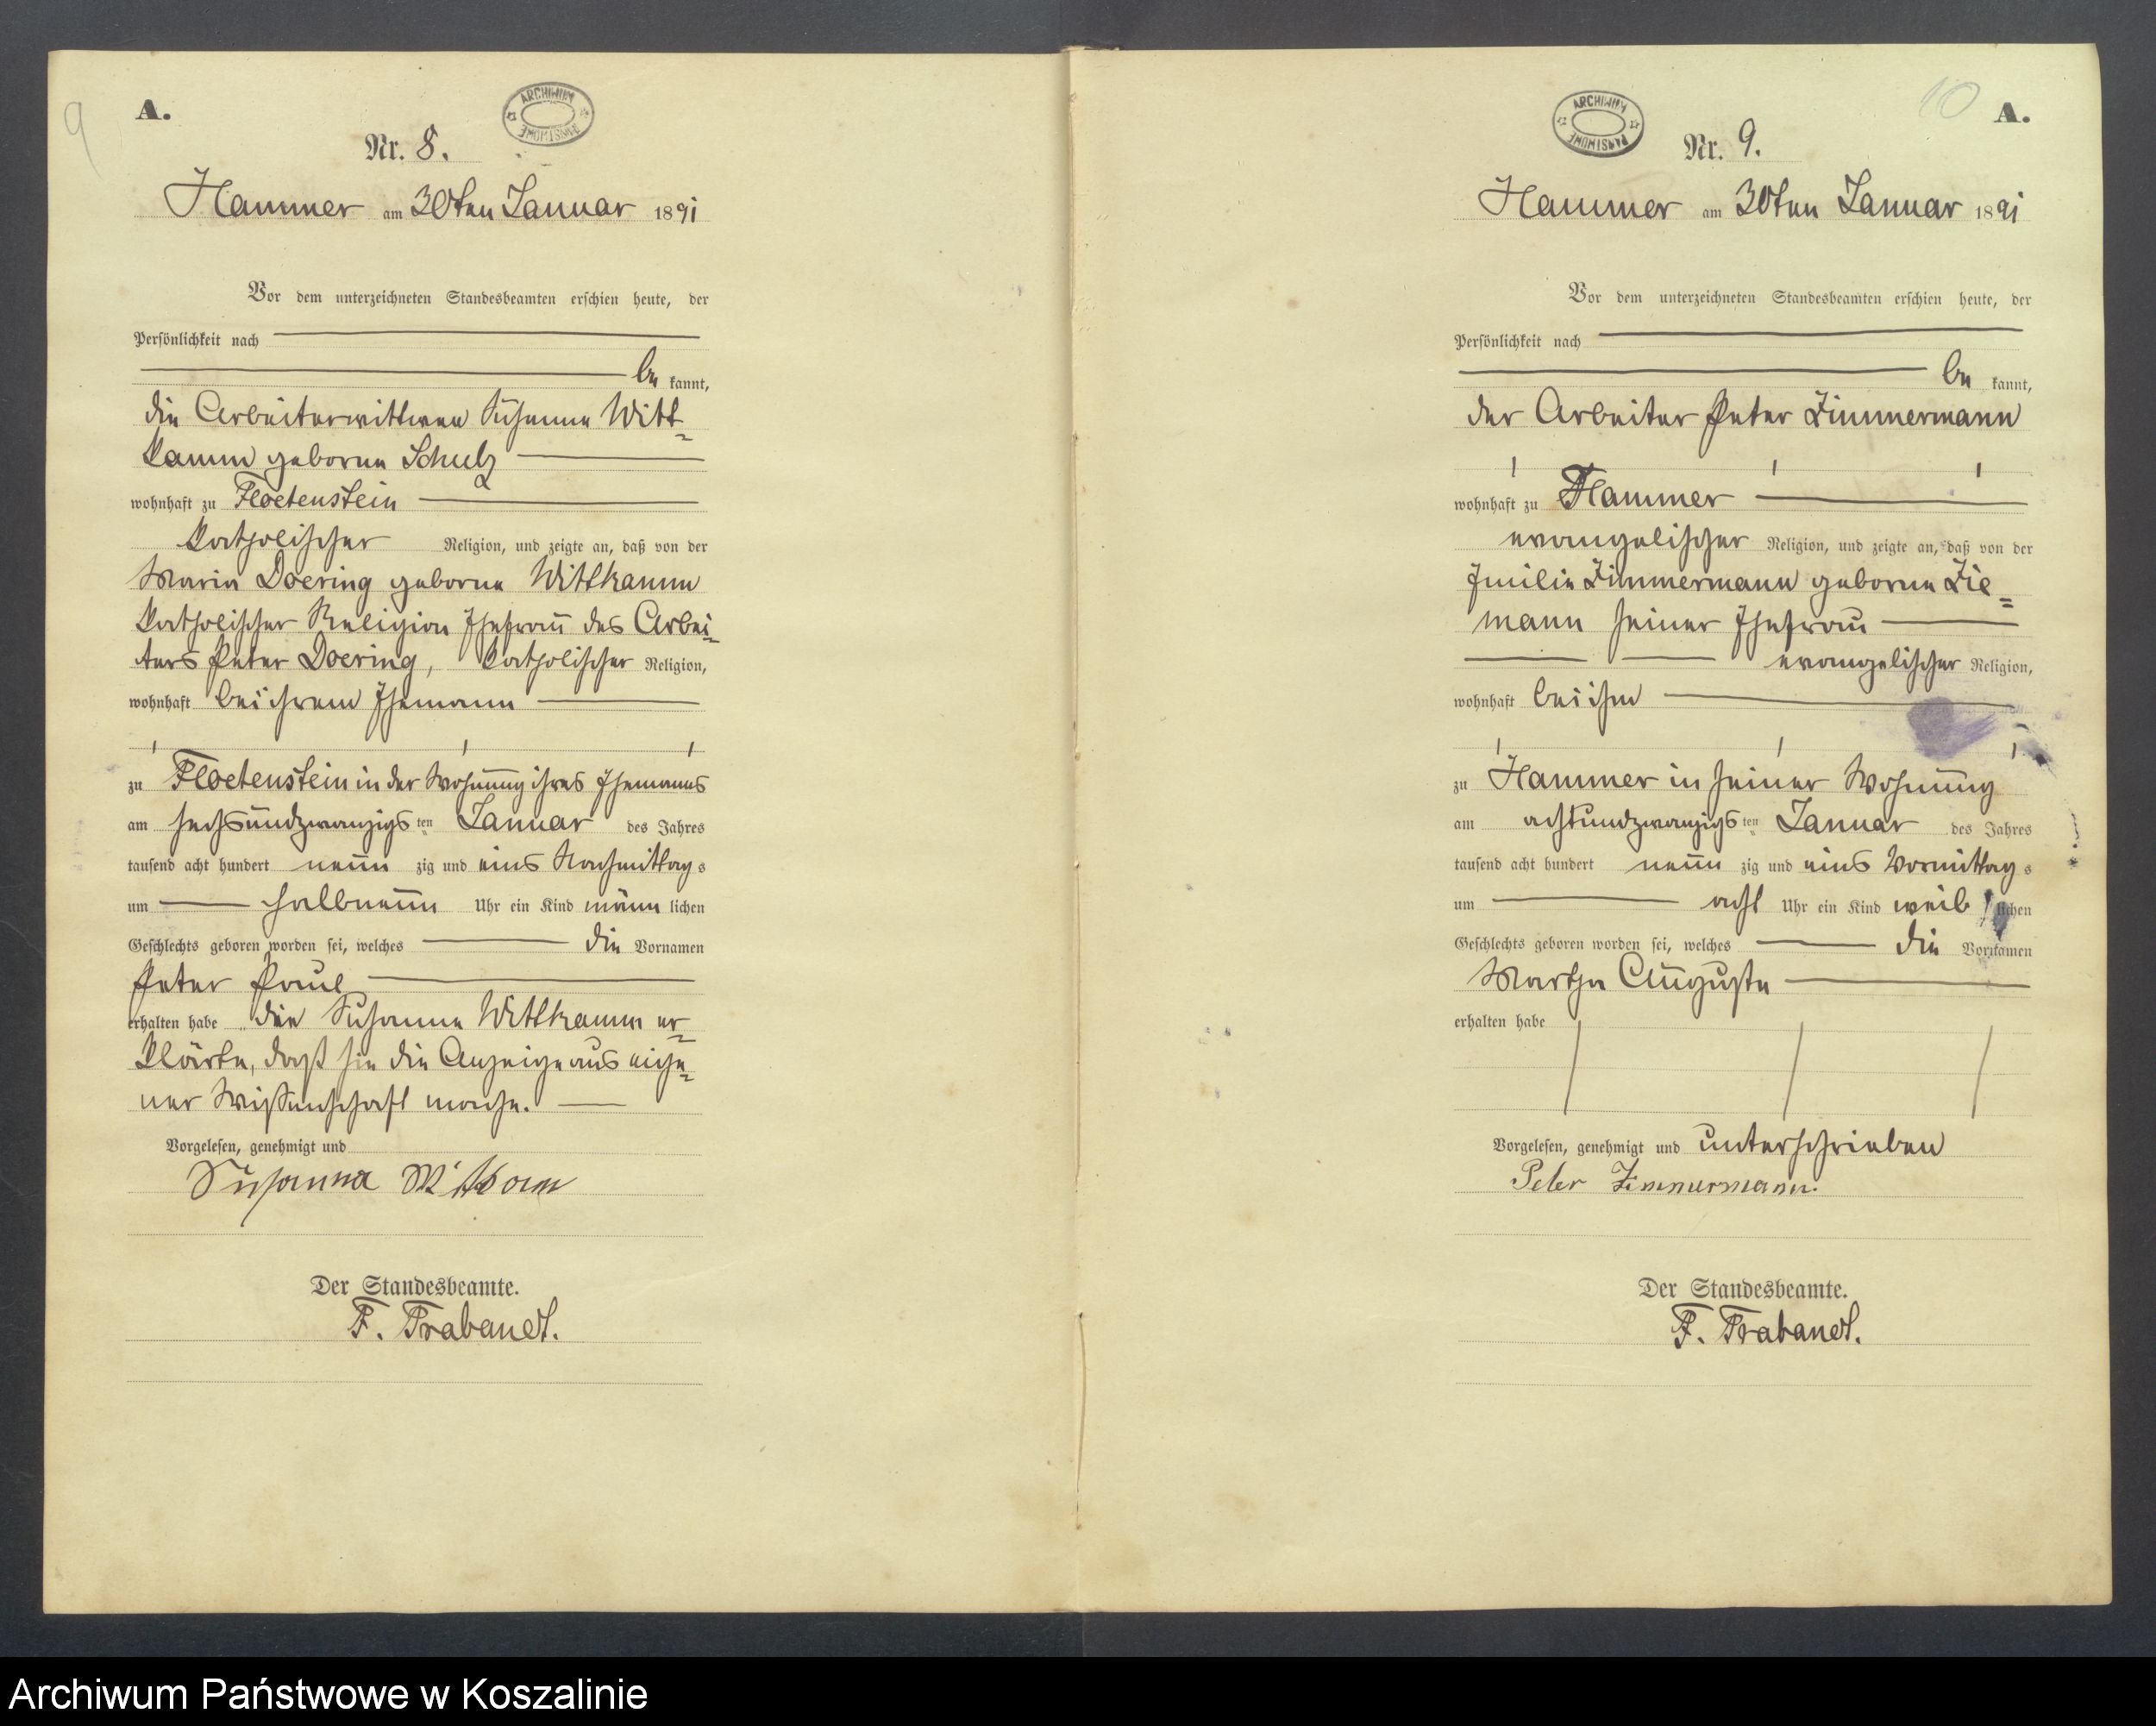 9
A.
ARCHIWUM PAŃSTWOWE
Nr. 8.
Hammer am 30ten Januar 1891
Vor dem unterzeichneten Standesbeamten erschien heute, der
Persönlichkeit nach
be kannt,
die Arbeiterwittwee Susanna Witt-
kamm geborne Schulz
wohnhaft zu Floetenstein
katholischer Religion, und zeigte an, daß von der
Maria Doering geborne Wittkamm
katholischer Religion Ehefrau des Arbei-
ters Peter Doering, katholischer Religion,
wohnhaft bei ihrem Ehemann
zu Floetenstein in der Wohnung ihres Ehemanns
am sechsundzwanzigs ten Januar des Jahres
tausend acht hundert neun zig und eins Nachmittag s
um halbneun Uhr ein Kind männ lichen
Geschlechts geboren worden sei, welches die Vornamen
Peter Paul
erhalten habe die Susanna Wittkamm er-
klärte, daß sie die Anzeige aus eige-
ner Wissenschaft mache.
Vorgelesen, genehmigt und
Susanna Witkam
Der Standesbeamte.
F. Trabandt.
10
A.
ARCHIWUM PAŃSTWOWE
Nr. 9.
Hammer am 30ten Januar 1891
Vor dem unterzeichneten Standesbeamten erschien heute, der
Persönlichkeit nach
be kannt,
der Arbeiter Peter Zimmermann
wohnhaft zu Hammer
evangelischer Religion, und zeigte an, daß von der
Emilie Zimmermann geborne Zie=
mann seiner Ehefrau
evangelischer Religion,
wohnhaft bei ihm
zu Hammer in seiner Wohnung
am achtundzwanzigs ten Januar des Jahres
tausend acht hundert neun zig und eins Vormittag s
um acht Uhr ein Kind weib lichen
Geschlechts geboren worden sei, welches die Vornamen
Martha Auguste
erhalten habe
Vorgelesen, genehmigt und unterschrieben
Peter Zimmermann.
Der Standesbeamte.
F. Trabandt.
Archiwum Państwowe w Koszalinie